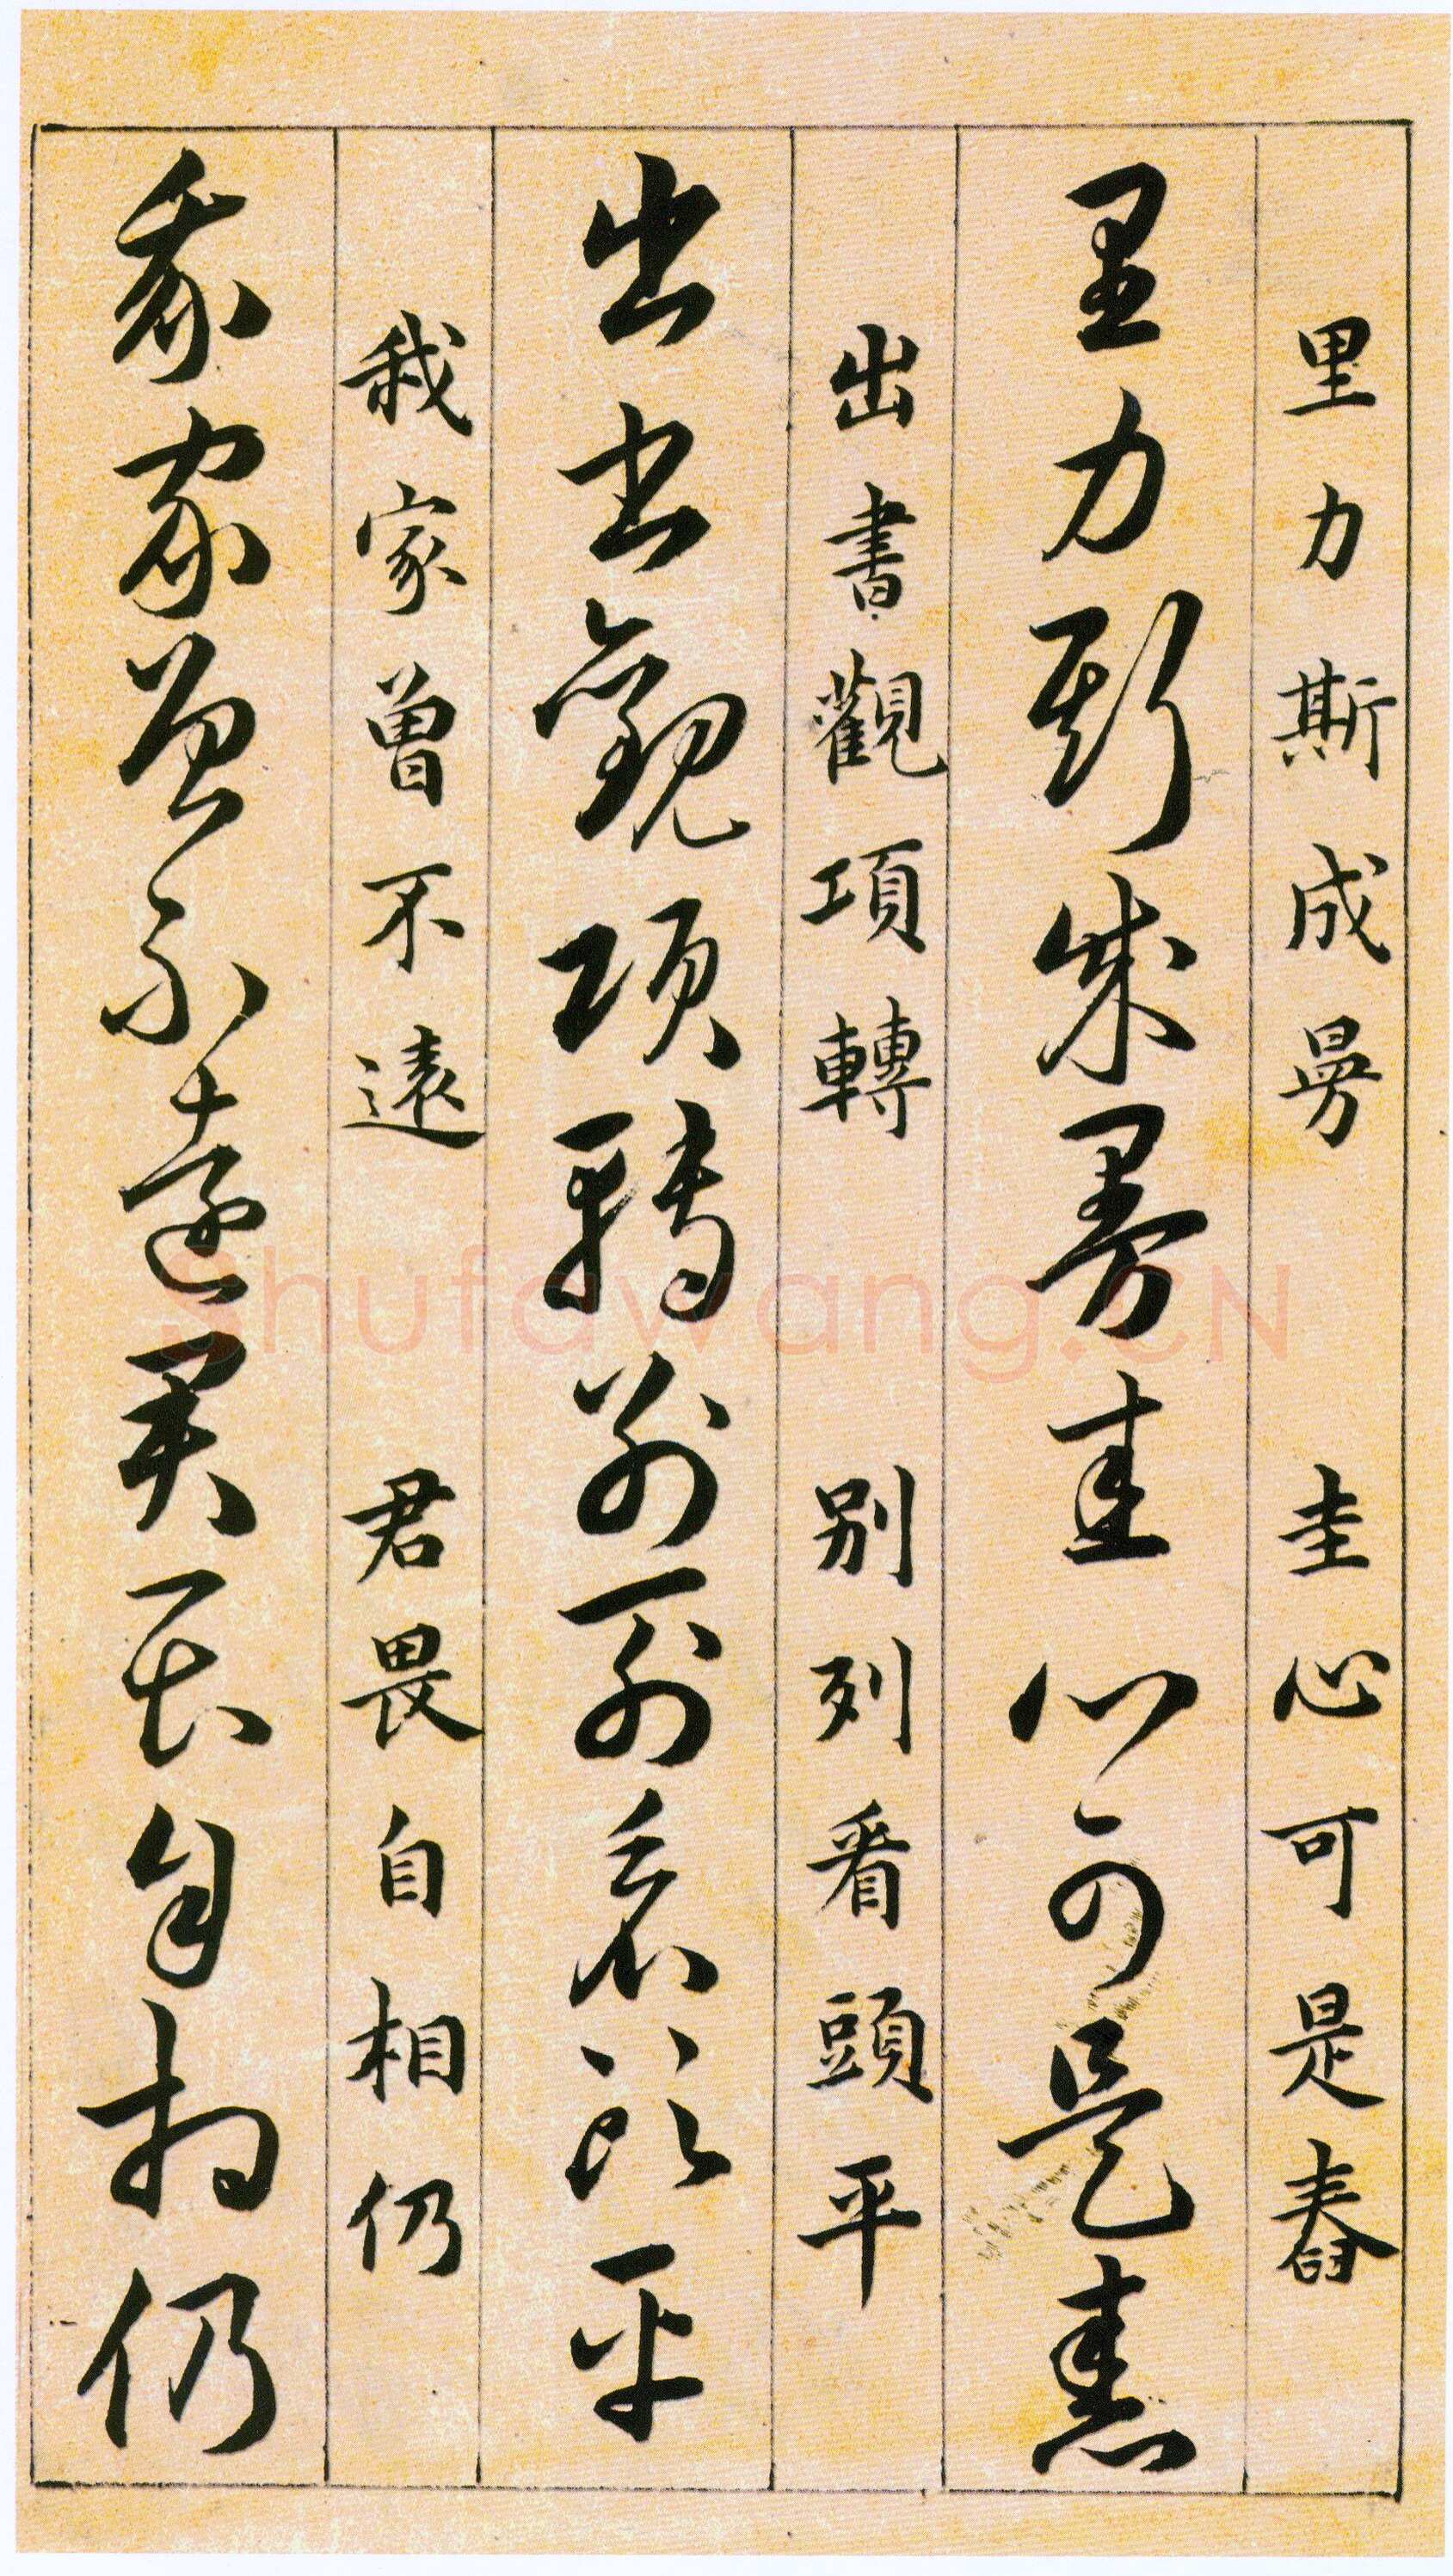 里力斯成曼 圭心可是舂
里力斯成曼圭心可是舂
出書觀項轉 别列看頭平
出書觀項轉别列看頭平
我家曾不遠 君畏自相仍
我家曾不遠君畏自相仍
Shufawang.CN